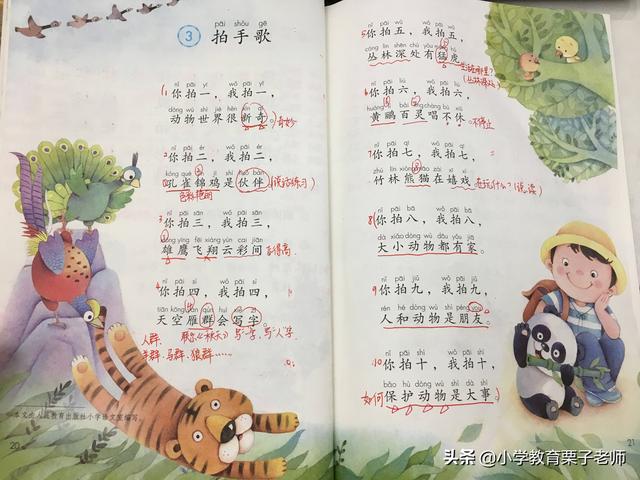 ③ 拍手歌
pāi shǒu gē
nǐ pāi yī wǒ pāi yī
1 你拍一，我拍一，
dòng wù shì jiè hěn xīn qí
动物世界很新奇。奇妙
nǐ pāi èr wǒ pāi èr
2 你拍二，我拍二，
孔雀锦鸡是伙伴。(说话练习)
色彩艳丽
nǐ pāi sān wǒ pāi sān
3 你拍三，我拍三，
xióng yīng fēi xiáng yún cǎi jiān
雄鹰飞翔云彩间。飞得高
nǐ pāi sì wǒ pāi sì
4 你拍四，我拍四，
tiān kōng yàn qún huì xiě zì
天空雁群会写字。
人群
羊群、马群、狼群……
本文由人民教育出版社小学语文室编写。
20
nǐ pāi wǔ wǒ pāi wǔ
5 你拍五，我拍五，
cóng lín shēn chù yǒu měng hǔ
丛林深处有猛虎。
生活在哪里？
(丛林深处)
nǐ pāi liù wǒ pāi liù
6 你拍六，我拍六，
黄鹂百灵唱不休。不停止
nǐ pāi qī wǒ pāi qī
7 你拍七，我拍七，
zhú lín xióng māo zài xī xì
竹林熊猫在嬉戏。在玩什么？(说读)
nǐ pāi bā wǒ pāi bā
8 你拍八，我拍八，
dà xiǎo dòng wù dōu yǒu jiā
大小动物都有家。
nǐ pāi jiǔ wǒ pāi jiǔ
9 你拍九，我拍九，
rén hé dòng wù shì péng you
人和动物是朋友。
nǐ pāi shí wǒ pāi shí
10 你拍十，我拍十，
bǎo hù dòng wù shì dà shì
如何保护动物是大事。
21
头条 @小学教育栗子老师